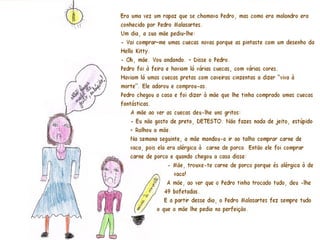 Era uma vez um rapaz que se chamava Pedro, mas como era malandro era
conhecido por Pedro Malasartes.
Um dia, a sua mãe pediu-lhe:
- Vai comprar-me umas cuecas novas porque as pintaste com um desenho da
Hello Kitty.
- Oh, mãe. Vou andando. – Disse o Pedro.
Pedro foi à feira e haviam lá várias cuecas, com várias cores.
Haviam lá umas cuecas pretas com caveiras cinzentas a dizer "viva à
morte". Ele adorou e comprou-as.
Pedro chegou a casa e foi dizer à mãe que lhe tinha comprado umas cuecas
fantásticas.
A mãe ao ver as cuecas deu-lhe uns gritos:
- Eu não gosto de preto, DETESTO. Não fazes nada de jeito, estúpido
– Ralhou a mãe.
Na semana seguinte, a mãe mandou-o ir ao talho comprar carne de
vaca, pois ela era alérgica à carne de porco. Então ele foi comprar
carne de porco e quando chegou a casa disse:
- Mãe, trouxe-te carne de porco porque és alérgica à de
vaca!
A mãe, ao ver que o Pedro tinha trocado tudo, deu -lhe
49 bofetadas.
E a partir desse dia, o Pedro Malasartes fez sempre tudo
o que a mãe lhe pedia na perfeição.